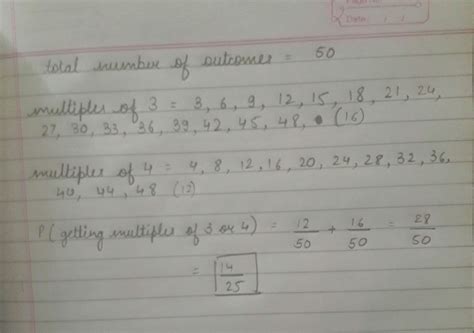 Date: / /
total number of outcomes = 50
multiples of 3 = 3, 6, 9, 12, 15, 18, 21, 24,
27, 30, 33, 36, 39, 42, 45, 48, (16)
multiples of 4 = 4, 8, 12, 16, 20, 24, 28, 32, 36,
40, 44, 48 (12)
P( getting multiples of 3 or 4) = 12/50 + 16/50 = 28/50
= 14/25